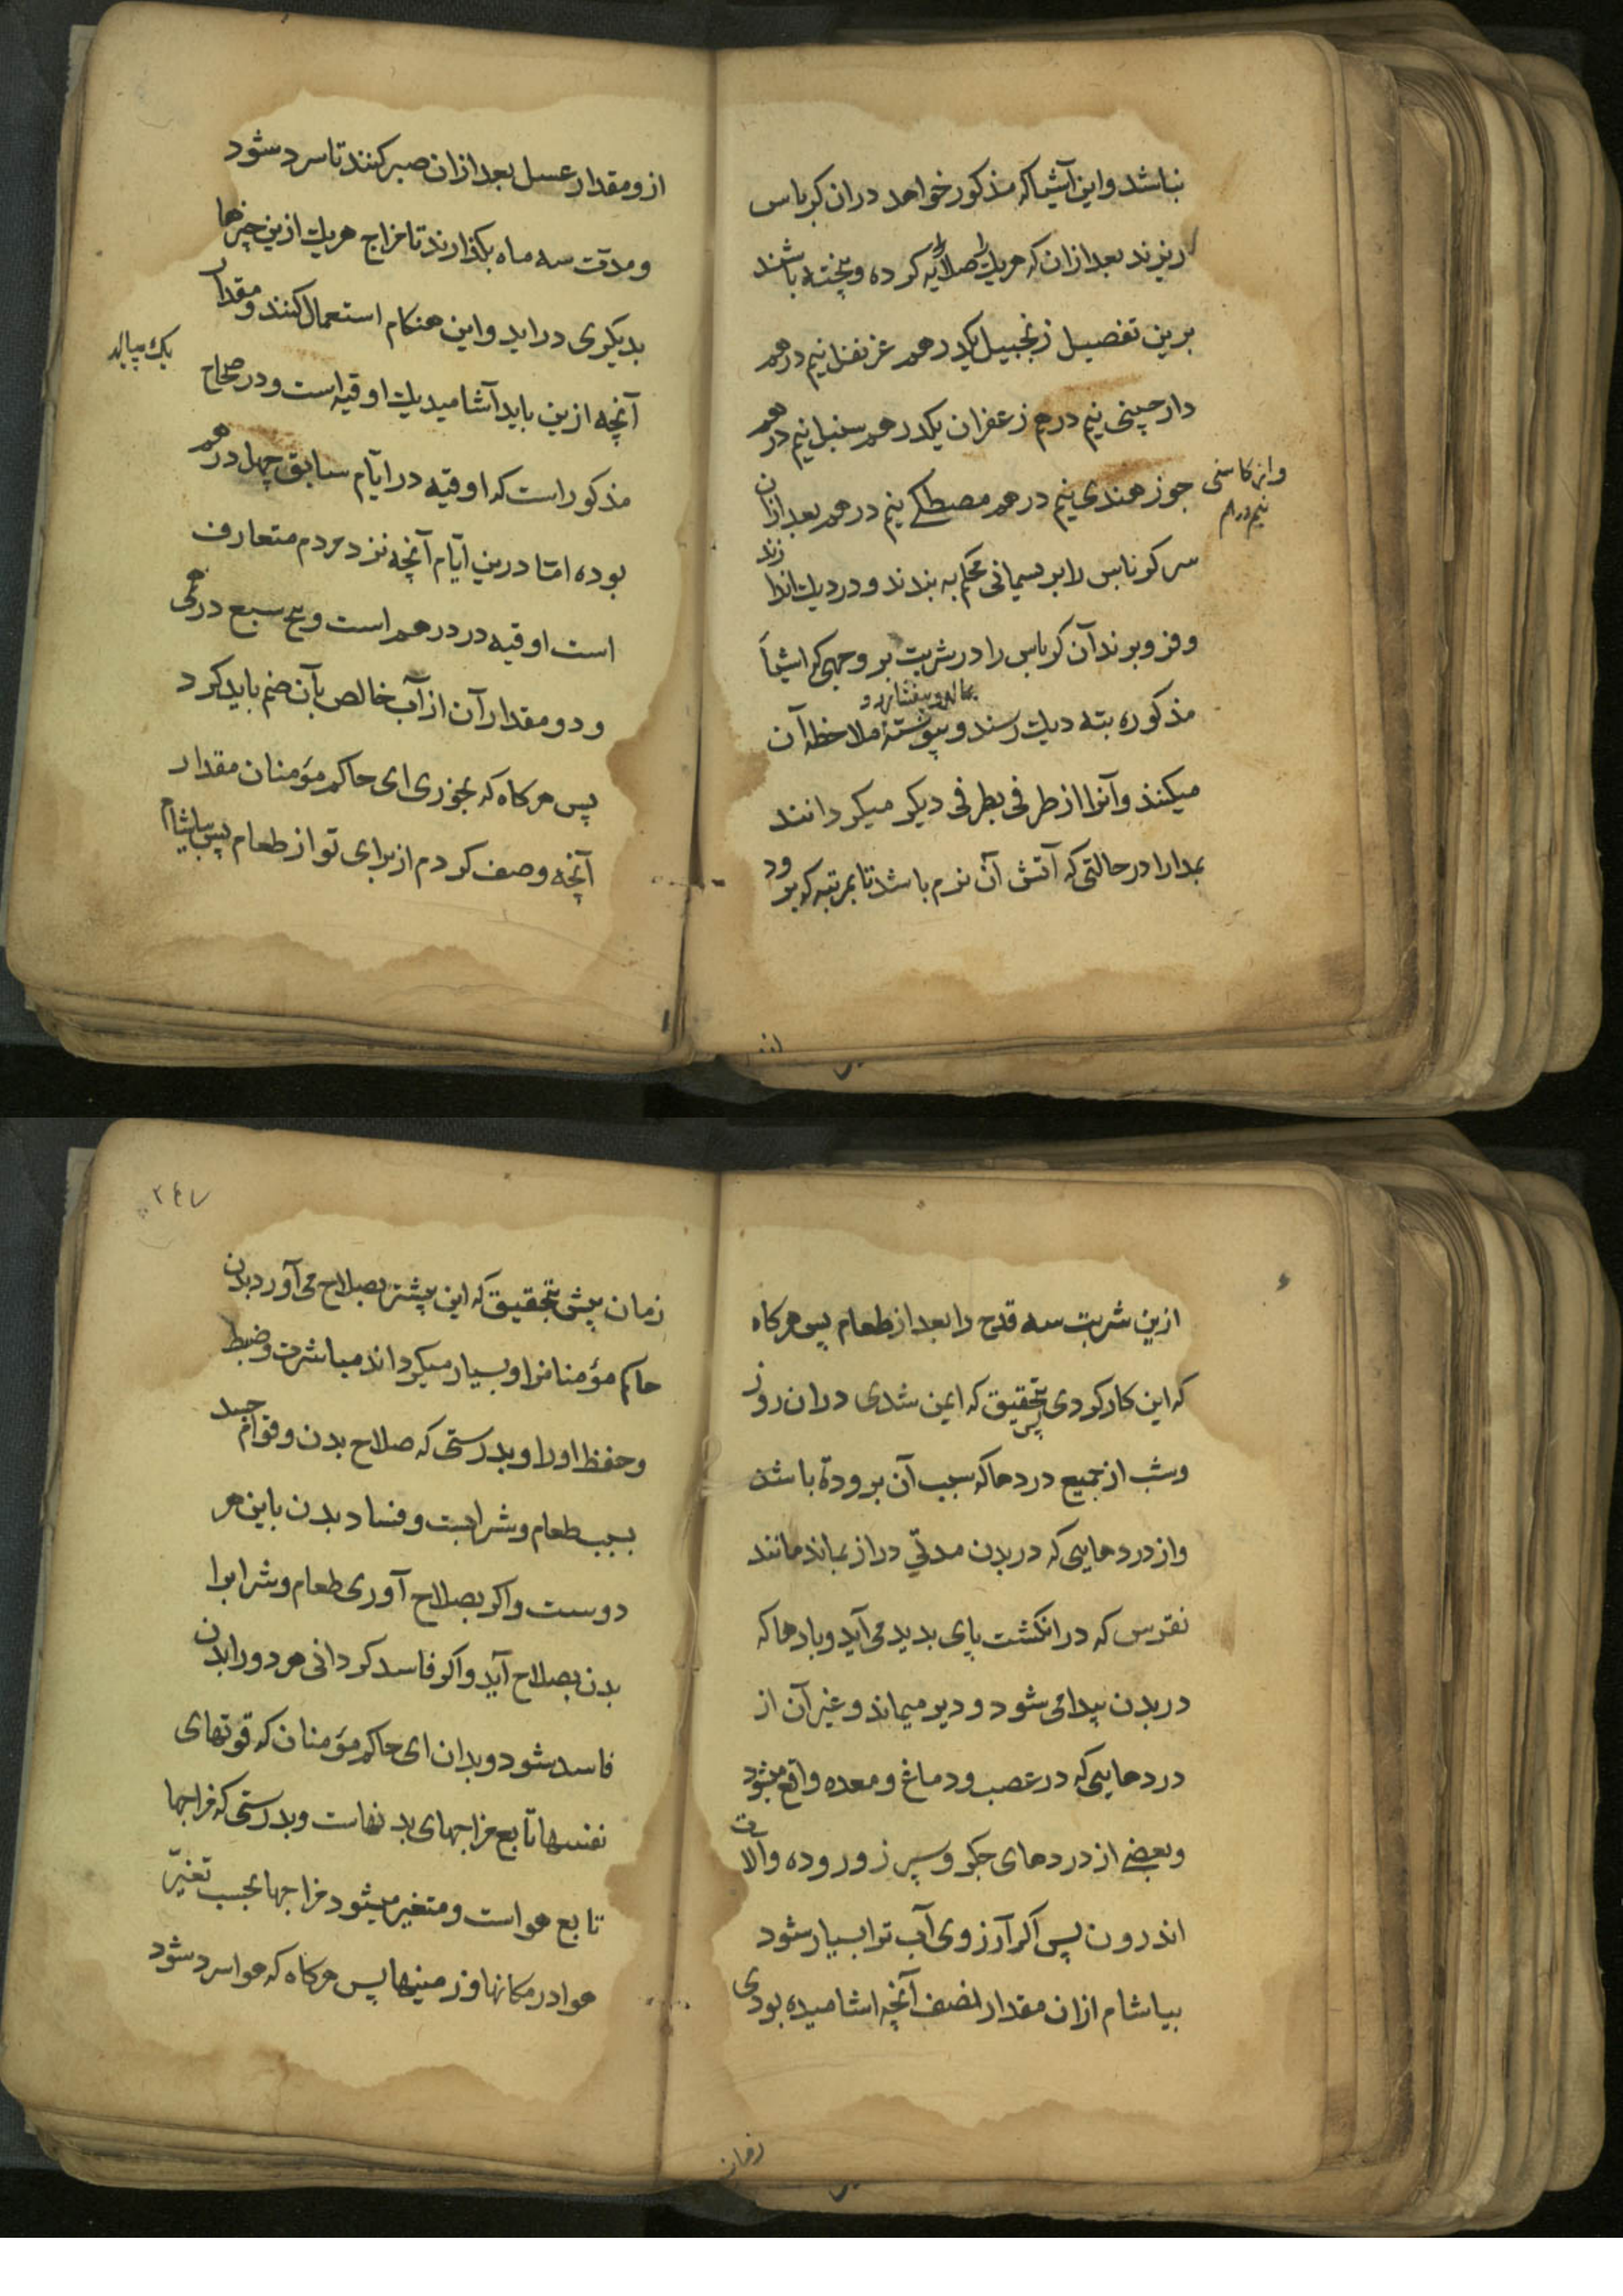 نباشد و این اشیا که مذکور خواهد دران کرباس
ریزند بعد ازان که هریك را صلایه کرده و پخته باشند
برین تفصیل زنجبیل یکدرهم غرنفل نیم درهم
دارچینی نیم درهم زعفران یکدرهم سنبل نیم درهم
جوز هندی نیم درهم مصطکی نیم درهم بعد ازان
واز کاسنی
نیم درهم
سر کوناس را بریسمانی محکم به بندند و در دیك اندازند
و فرو برند آن کرباس را در شربت بر وجهی که اشیاء
بمالند و بیفشارند و
مذکوره بته دیك رسند و پیوسته ملاحظه آن
میکنند و آنرا از طرفی بطرفی دیکر میکردانند
بمدارا در حالتی که آتش آن نرم باشد تا بمرتبه که برود
از و مقدار عسل بعد ازان صبر کنند تا سرد شود
و مدت سه ماه بکذارند تا مزاج هریك ازین چیزها
بدیکری دراید و این هنکام استعمال کنند و مقدار
آنچه ازین باید آشامید یك اوقیه است و در صحاح
یك پیاله
مذکور است که اوقیه در ایام سابق چهل درهم
بوده امّا درین ایّام آنچه نزد مردم متعارف
است اوقیه ده درهم است و پنج سبع درهمی
و دو مقدار آن از آب خالص بآن ضم باید کرد
پس هرکاه که بخوری ای حاکم مؤمنان مقدار
آنچه وصف کردم از برای تو از طعام پس بیاشام
ازین شربت سه قدح را بعد از طعام پس هرکاه
که این کار کردی پس بتحقیق که ایمن شدی دران روز
وشب از جمیع دردها که سبب آن برودة باشد
واز دردهایی که در بدن مدتی دراز بماند مانند
نقرس که در انکشت پای بدید می آید و بادها که
در بدن پیدا می شود و دیر میماند و غیر آن از
دردهایی که در عصب و دماغ و معده واقع میشود
و بعضی از دردهای جکر و سپرز و روده و آلات
اندرون پس اکر آرزوی آب ترا بسیار شود
بیاشام ازان مقدار نصف آنچه اشامیده بودی
زمان
۲٤۷
زمان پیش بتحقیق که این بیشتر بصلاح می آورد بدن
حاکم مؤمنانرا و بسیار میکرداند مباشرت و ضبط
و حفظ او را و بدرستی که صلاح بدن و قوام جسد
بسبب طعام و شرابست و فساد بدن باین هر
دوست و اکر بصلاح آوری طعام و شرابرا
بدن بصلاح آید و اکر فاسد کردانی هر دو را بدن
فاسد شود و بدان ای حاکم مؤمنان که قوتهای
نفسها تابع مزاجهای بدنهاست و بدرستی که مزاجها
تابع هواست و متغیر میشود مزاجها بحسب تغیّر
هوا در مکانها و زمینها پس هرکاه که هوا سرد شود